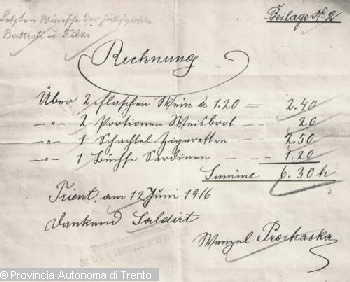 Letzten Wünsche der
Battisti u. Filzi
Beilage No 2
Rechnung
Über 2 Flaschen Wein à 1.20 = 2.40
" 2 Portionen Weisbrot - 20
" 1 Schachtel Zigaretten 2.50
" 1 Büchse Sardinen - 1.20
Summe 6.30 h
Trient, am 12 Juni 1916
Dankend Saldirt
Wenzel Prochaska
© Provincia Autonoma di Trento